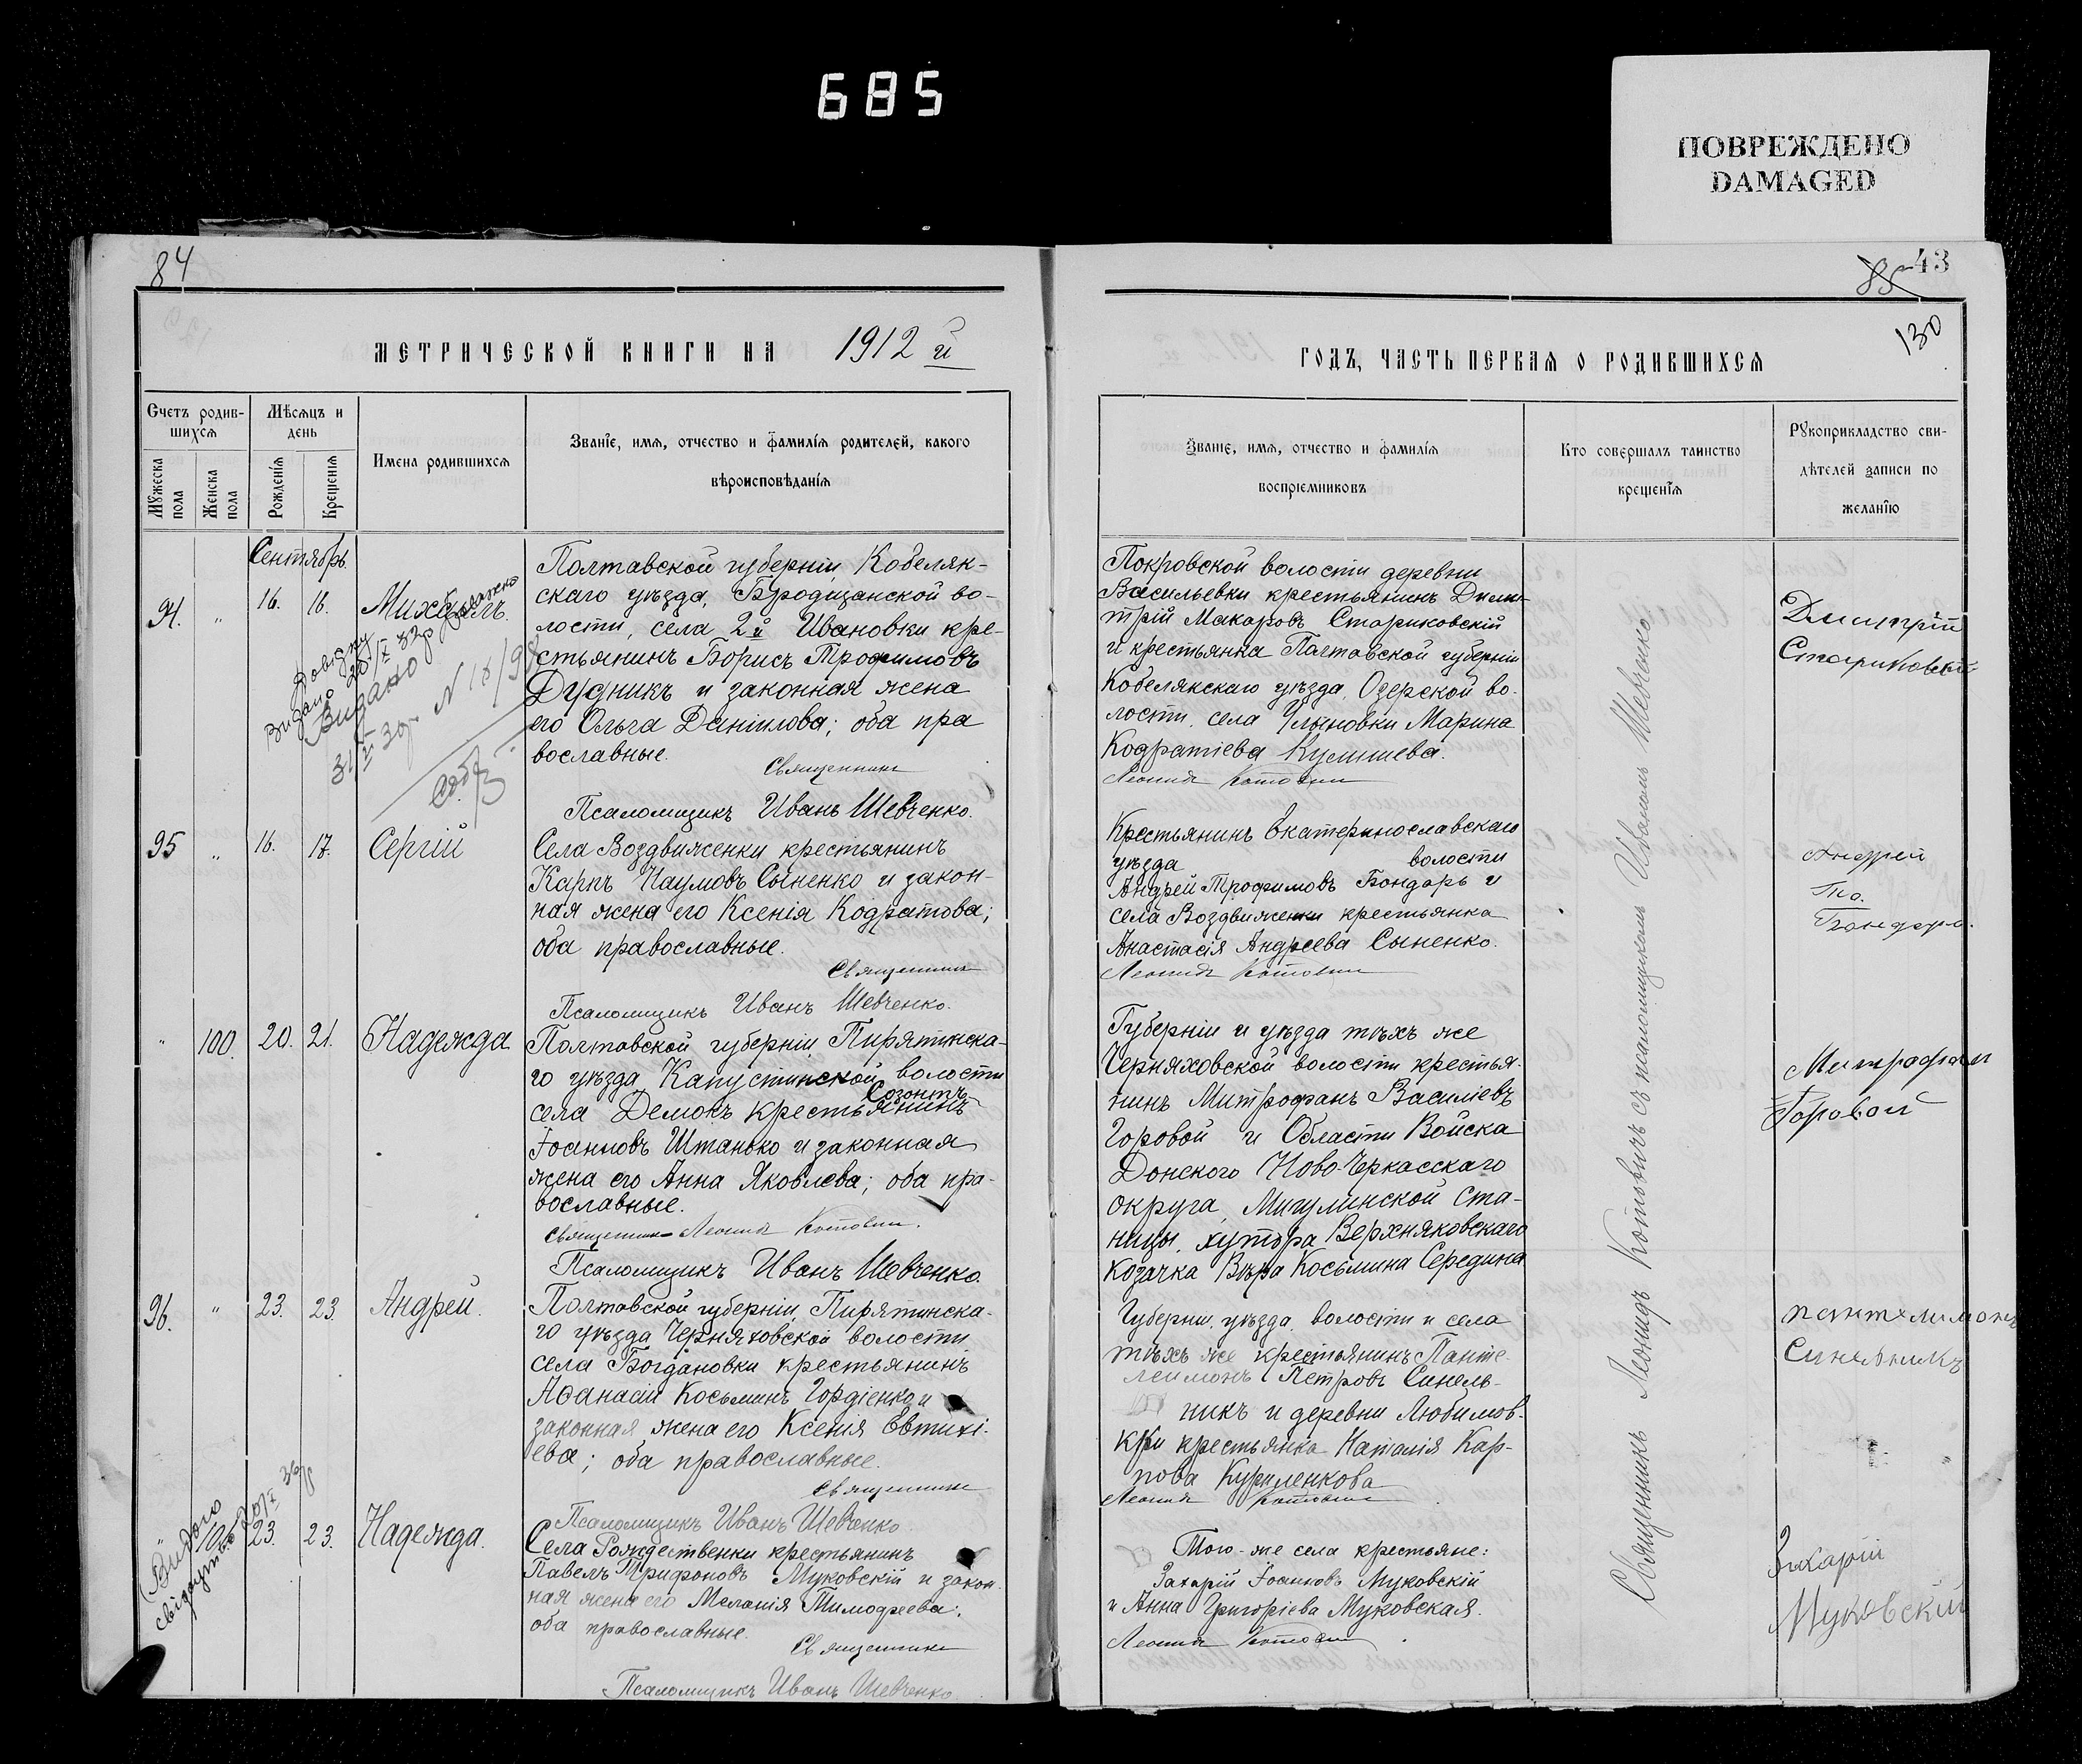 685
ПОВРЕЖДЕНО
DAMAGED
84
МЕТРИЧЕСКОЙ КНИГИ НА 1912 й
Счетъ родив-
шихся
Мѣсяцъ и
день
Мужеска
пола
Женска
пола
Рожденія
Крещенія
Имена родившихся
Званіе, имя, отчество и фамилія родителей, какого
вѣроисповѣданія
Сентябрь.
94. „ 16. 16. Михаилъ.
Полтавской губерніи, Кобеляк-
скаго уѣзда, Бродщанской во-
лости, села 2й Ивановки кре-
стьянинъ Борисъ Трофимовъ
Дудникъ и законная жена
его Ольга Даніилова; оба пра
вославные.
Священникъ
Видано
Псаломщикъ Иванъ Шевченко.
95 „ 16. 17. Сергій
Села Воздвиженки крестьянинъ
Карпъ Наумовъ Сыненко и закон-
ная жена его Ксенія Кодратова;
оба православные.
Священникъ
Псаломщикъ Иванъ Шевченко.
„ 100. 20. 21. Надежда
Полтавской губерніи, Пирятинска-
го уѣзда Капустинской волости
села Демокъ крестьянинъ
Созонтъ
Іоанновъ Штанько и законная
жена его Анна Яковлева; оба пра-
вославные.
Священникъ Леонидъ Котович.
Псаломщикъ Иванъ Шевченко.
96. „ 23. 23. Андрей.
Полтавской губерніи, Пирятинска-
го уѣзда Черняховской волости
села Богдановки крестьянинъ
Аѳанасій Косьминъ Гордіенко и
законная жена его Ксенія Евтихі-
ева; оба православные.
Священникъ
Псаломщикъ Иванъ Шевченко.
„ 23. 23. Надежда.
Села Рождественки крестьянинъ
Павелъ Трифоновъ Муковскій и закон-
ная жена его Меланія Тимофеева;
оба православные.
Священникъ
Псаломщикъ Иванъ Шевченко
85 43
130
ГОДЪ, ЧАСТЬ ПЕРВАЯ О РОДИВШИХСЯ
Званіе, имя, отчество и фамилія
воспріемниковъ
Кто совершалъ таинство
крещенія
Рукоприкладство сви-
дѣтелей записи по
желанію
Покровской волости деревни
Васильевки крестьянинъ Дими-
трій Макаровъ Стариковскій
и крестьянка Полтавской губерніи
Кобелякскаго уѣзда, Озерской во-
лости, села
Марина
Кодратіева Кулишева.
Леонидъ Котович
Дмитрій
Стариковскій
Крестьянинъ Екатеринославскаго
уѣзда волости
Андрей Трофимовъ Бондарь и
села Воздвиженки крестьянка
Анастасія Андреева Сыненко.
Леонидъ Котович
Андрей
Бондарь.
Губерніи и уѣзда тѣхъ же
Черняховской волости крестья-
нинъ Митрофанъ Василіевъ
Горовой и Области Войска
Донского Ново-Черкасскаго
округа, Мигулинской ста-
ницы, хутора Верхняковскаго
козачка Вѣра Косьмина Середина
Митрофан
Горовой
Губерніи, уѣзда, волости и села
тѣхъ же крестьянинъ Панте-
леимонъ Петровъ Синель-
никъ и деревни Любимов-
ки крестьянка Наталія Кар-
пова Куриленкова
Леонидъ Котович
Пантелимонъ
Синелникъ
Того-же села крестьяне:
Захарій Іоанновъ Муковскій
и Анна Григоріева Муковская.
Леонидъ Котович
Захарій
Муковскій
Священникъ Леонидъ Котовичъ съ псаломщикомъ Иваномъ Шевченко.